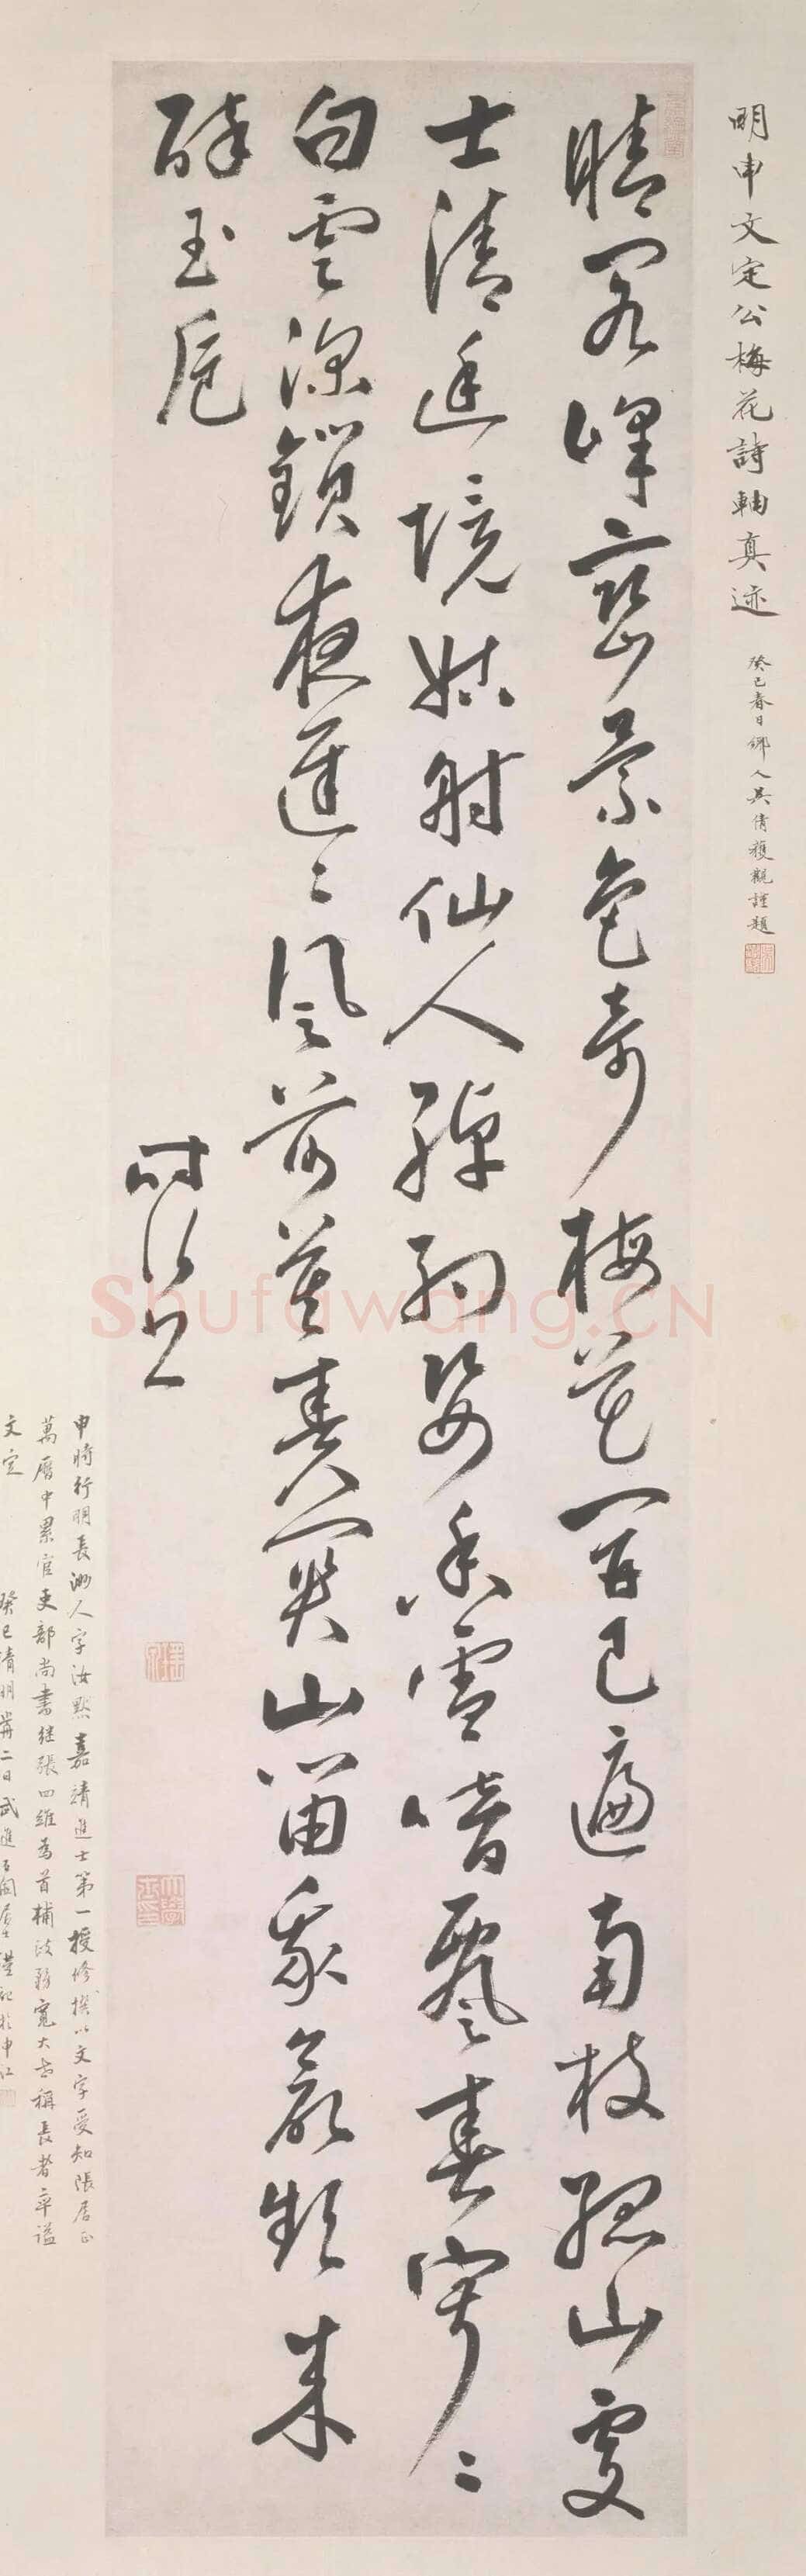 明申文定公梅花詩軸真迹 癸巳春日鄉人吳倩獲觀謹題
晴峰巒景色奇梅花開已遍南枝孤山處
士清境姑射仙人綽約姿香雪暗飄春寂〻
白雲深鎖夜遲〻風前莫關山笛我欲頻來
醉玉巵
時行
申時行明長洲人字汝默嘉靖進士第一授修撰以文字受知張居正
萬曆中累官吏部尚書繼張四維為首輔政務寬大世稱長者卒諡
文定 癸巳清明二日武進謹記於申江
Shufawang.CN